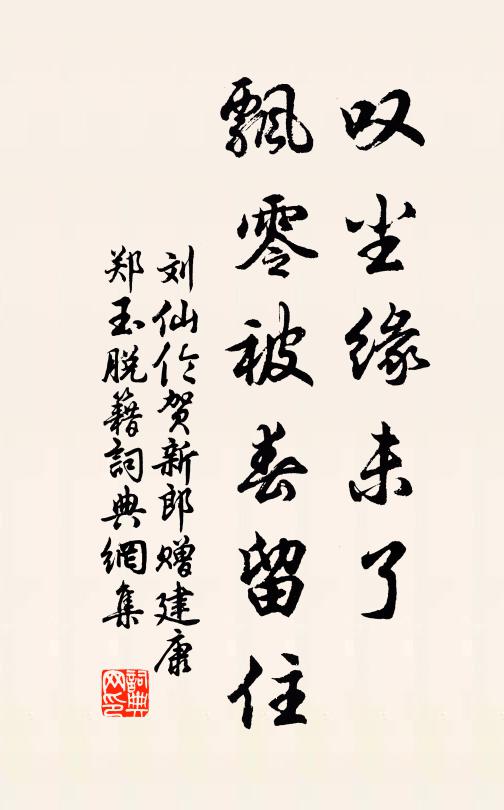 叹尘缘未了
飘零被春留住
刘仙伦贺新郎赠建康
郑玉脱籍詞典網集
詞典网印